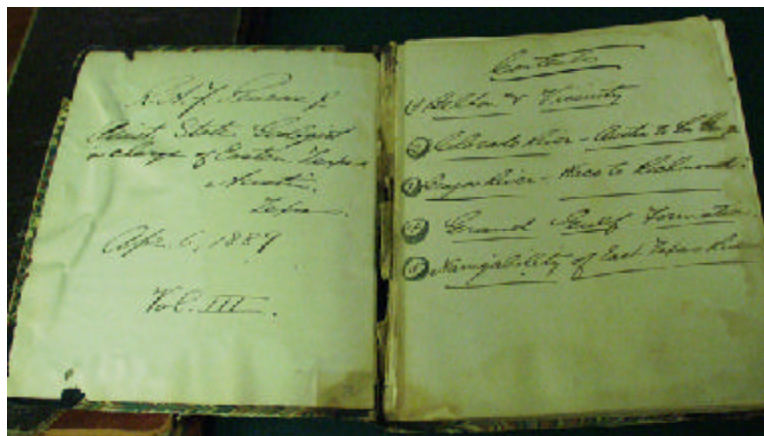 R. A. F. Penrose Jr
Assist. State Geologist
in charge of Eastern Texas
Austin.
Texas.
Apr. 6, 1889
Vol. III.
Contents
① Belton & Vicinity
② Colorado River - Austin to
③ Brazos River - Waco to Richmond.
④ Grand Gulf Formation.
⑤ Navigability of East Texas Rivers